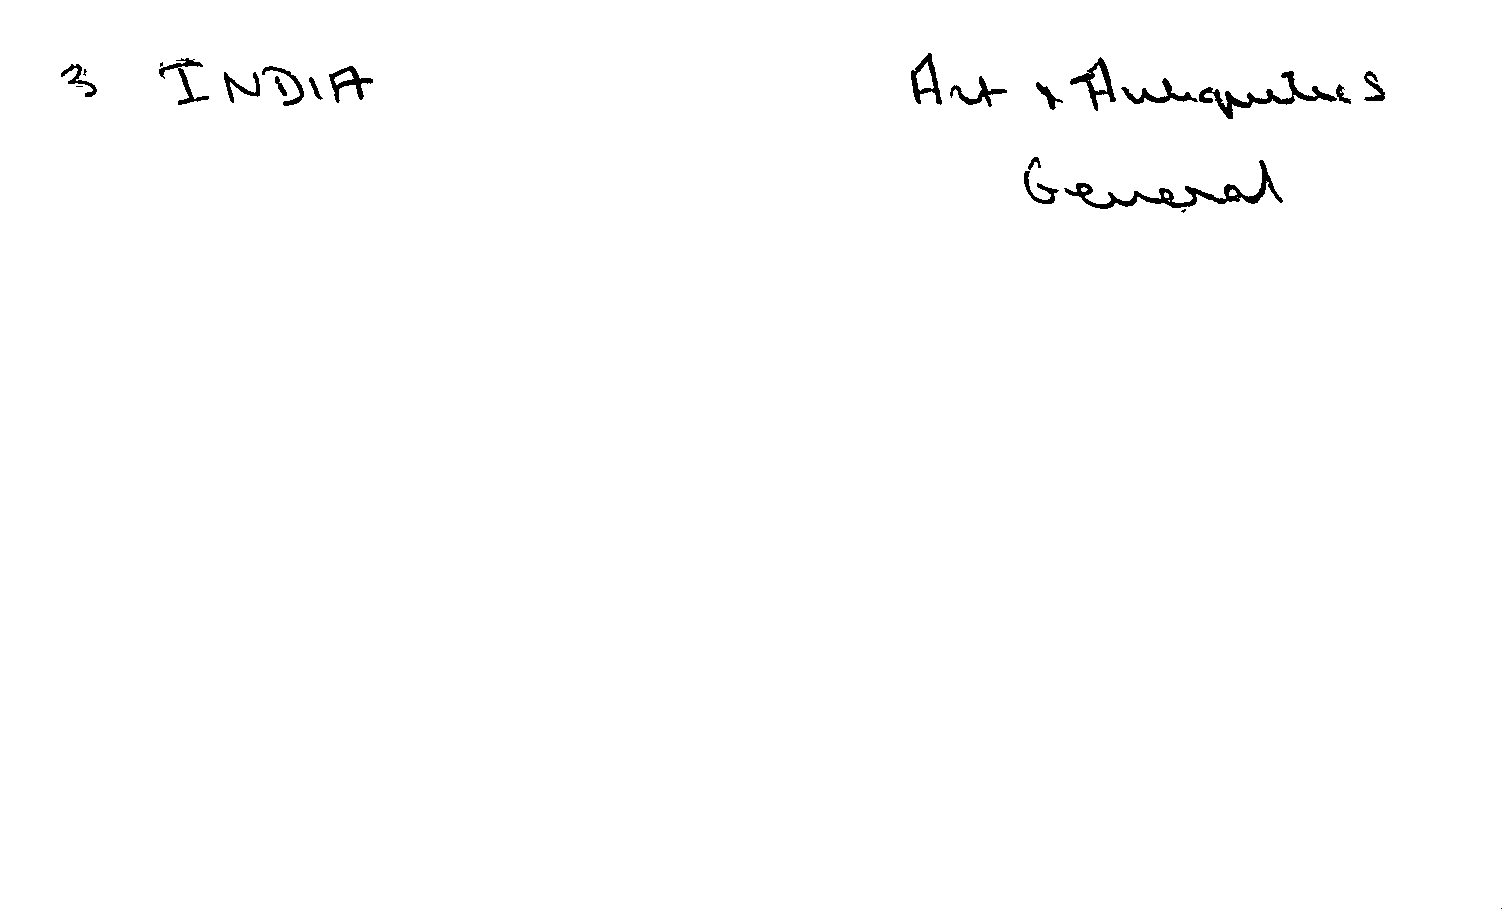 3 INDIA Art & Antiquities
General